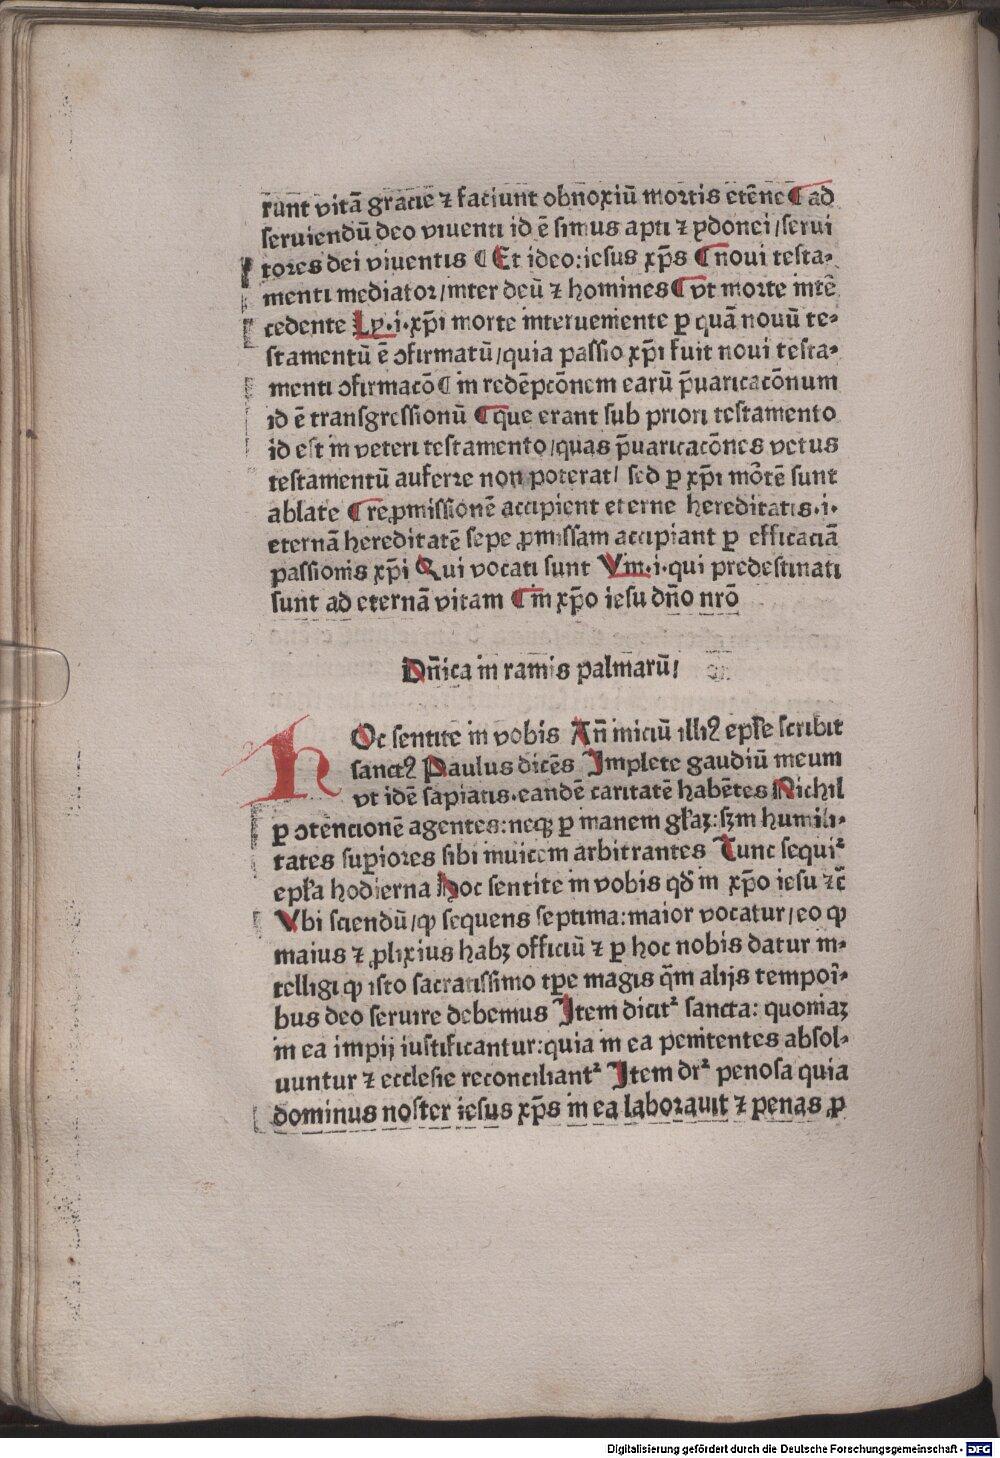 runt vitā gracie ⁊ faciunt obnoxiū mortis etēne ¶ ad
seruiendū deo viuenti id ē simus apti ⁊ ydonei / serui
tores dei viuentis ¶ Et ideo: iesus xp̄s ¶ noui testa⸗
menti mediator / inter deū ⁊ homines ¶ vt morte intē
cedente Ly .i. xp̄i morte interueniente ꝑ quā nouū te⸗
stamentū ē ꝯfirmatū / quia passio xp̄i fuit noui testa⸗
menti ꝯfirmacō ¶ in redēpcōnem earū p̄uaricacōnum
id ē transgressionū ¶ que erant sub priori testamento
id est in veteri testamento / quas p̄uaricacōnes vetus
testamentū auferre non poterat / sed ꝑ xp̄i mōtē sunt
ablate ¶ reꝓmissionē accipient eterne hereditatis .i.
eternā hereditatē sepe ꝓmissam accipiant ꝑ efficaciā
passionis xp̄i Qui vocati sunt Vm .i. qui predestinati
sunt ad eternā vitam ¶ in xp̄o iesu dn̄o nrō
Dn̄ica in ramis palmarū /
HOc sentite in vobis An̄ iniciū illiꝰ ep̄łe scribit
sanctꝰ Paulus dicēs Implete gaudiū meum
vt idē sapiatis . eandē caritatē habētes Nichil
ꝑ ꝯtencionē agentes: neqꝫ ꝑ inanem głaꝫ: sꝫm humili⸗
tates suꝑiores sibi inuicem arbitrantes Tunc sequiᷣ
epł̄a hodierna Hoc sentite in vobis qd̄ in xp̄o iesu ⁊c̄
Vbi sciendū / ꝙ sequens septima: maior vocatur / eo ꝙ
maius ⁊ ꝓlixius habꝫ officiū ⁊ ꝑ hoc nobis datur in⸗
telligi ꝙ isto sacratissimo tꝑe magis q̄m alijs tempoī⸗
bus deo seruire debemus Item dicitᷣ sancta: quoniaꝫ
in ea impij iustificantur: quia in ea penitentes absol⸗
uuntur ⁊ ecclesie reconciliantᷣ Item drᷣ penosa quia
dominus noster iesus xp̄s in ea laborauit ⁊ penas ꝓ
Digitalisierung gefördert durch die Deutsche Forschungsgemeinschaft - DFG